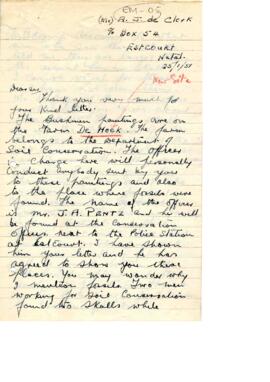 EM-05
(Mr) A. J. de Clerk
% Box 54
Estcourt
Natal.
25/1/51
New Site
Dear Sir,
Thank you very much for
your kind letter.
The Bushmen paintings are on
the farm De Hoek. The farm
belongs to the Department of
Soil Conservation. The Officer
in charge here will personally
conduct anybody sent by you
to these paintings and also
to the place where fossils were
found. The name of the Officer
is Mr. J. A. Pentz and he will
be found at the Conservation
Offices next to the Police Station
at Estcourt. I have shown
him your letter and he has
agreed to show you these
places. You may wonder why
I mention fossils. Two men
working for Soil Conservation
found two skulls while